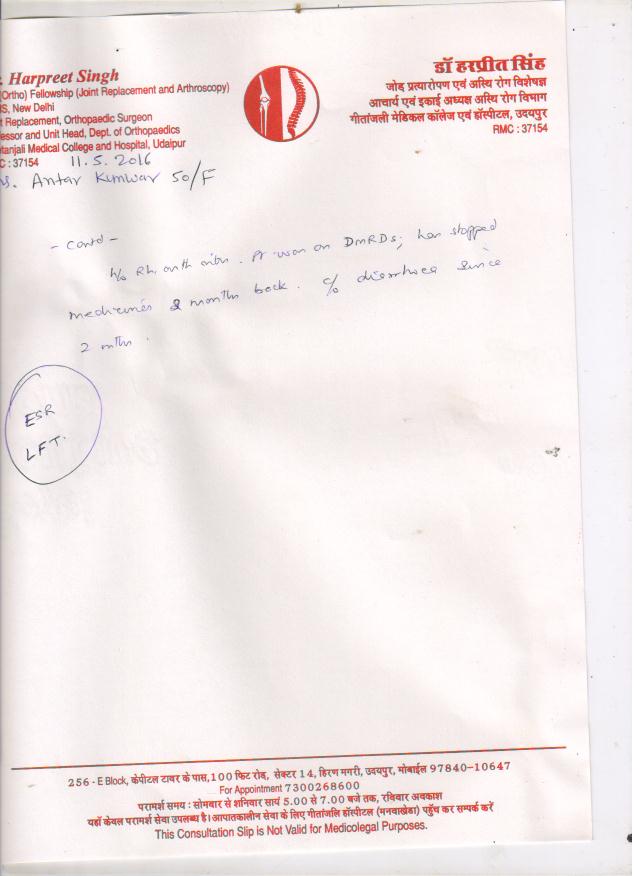 . Harpreet Singh
(Ortho) Fellowship (Joint Replacement and Arthroscopy)
IS, New Delhi
t Replacement, Orthopaedic Surgeon
essor and Unit Head, Dept. of Orthopaedics
tanjali Medical College and Hospital, Udaipur
C : 37154
डॉ हरप्रीत सिंह
जोड प्रत्यारोपण एवं अस्थि रोग विशेषज्ञ
आचार्य एवं इकाई अध्यक्ष अस्थि रोग विभाग
गीतांजली मेडिकल कॉलेज एवं हॉस्पीटल, उदयपुर
RMC : 37154
11.5.2016
s. Antar Kunwar 50/F
- Contd -
h/o Rh. . Pt was on DMRDs; has stopped
medicines 2 months back. c/o diarrhoea since
2 mths.
ESR
LFT.
256 - E Block, केपीटल टावर के पास, 100 फिट रोड, सेक्टर 14, हिरण मगरी, उदयपुर, मोबाईल 97840-10647
For Appointment 7300268600
परामर्श समय : सोमवार से शनिवार सायं 5.00 से 7.00 बजे तक, रविवार अवकाश
यहाँ केवल परामर्श सेवा उपलब्ध है। आपातकालीन सेवा के लिए गीतांजलि हॉस्पीटल (मनवाखेडा) पहुँच कर सम्पर्क करें
This Consultation Slip is Not Valid for Medicolegal Purposes.